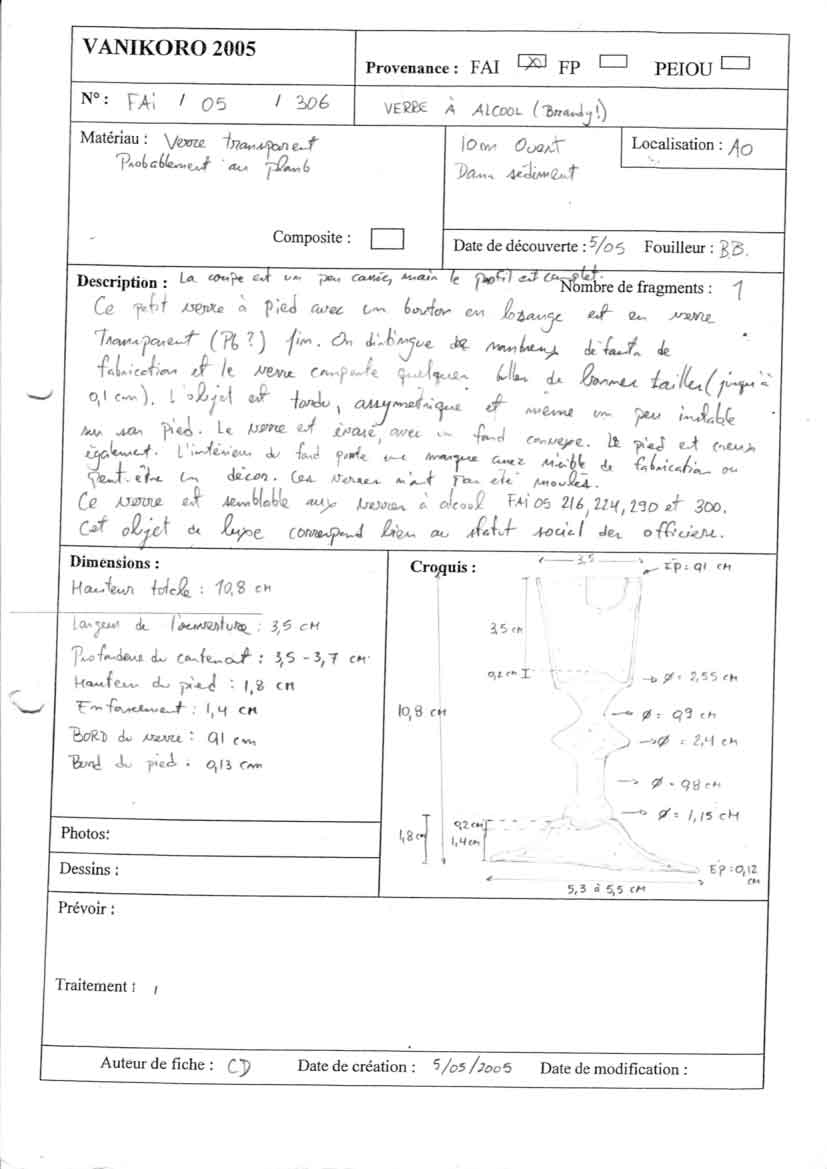 VANIKORO 2005
Provenance : FAI ☒ FP ☐ PEIOU ☐
N° : FAi / 05 / 306
VERRE À ALCOOL (Brandy!)
Matériau : Verre transparent
Probablement au plomb
Composite : ☐
10m Ouest
Dans sédiment
Localisation : A0
Date de découverte : 5/05 Fouilleur : B.B.
Description : La coupe est un peu cassée, mais le profil est complet.
Nombre de fragments : 1
Ce petit verre à pied avec un bouton en losange est en verre
Transparent (Pb ?) fin. On distingue de nombreux défauts de
fabrication et le verre comporte quelques bulles de bonnes tailles (jusqu'à
0,1 cm). L'objet est tordu, assymétrique et même un peu instable
sur son pied. Le verre est évasé, avec un fond convexe. Le pied est creux
également. L'intérieur du fond porte une marque assez visible de fabrication ou
peut-être un décor. Ces verres n'ont pas été moulés.
Ce verre est semblable aux verres à alcool FAi 05 216, 224, 290 et 300.
Cet objet de luxe correspond bien au statut social des officiers.
Dimensions :
Hauteur totale : 10,8 cm
Largeur de l'ouverture : 3,5 cm
Profondeur du contenant : 3,5 - 3,7 cm
Hauteur du pied : 1,8 cm
Enfoncement : 1,4 cm
BORD du verre : 0,1 cm
Bord du pied : 0,13 cm
Croquis :
3,5
EP = 0,1 cm
3,5 cm
0,2 cm
Ø = 2,55 cm
10,8 cm
Ø = 0,9 cm
Ø = 2,4 cm
Ø = 0,8 cm
Ø = 1,15 cm
1,8 cm
0,2 cm
1,4 cm
EP = 0,12 cm
5,3 à 5,5 cm
Photos:
Dessins :
Prévoir :
Traitement :
Auteur de fiche : CD Date de création : 5/05/2005 Date de modification :